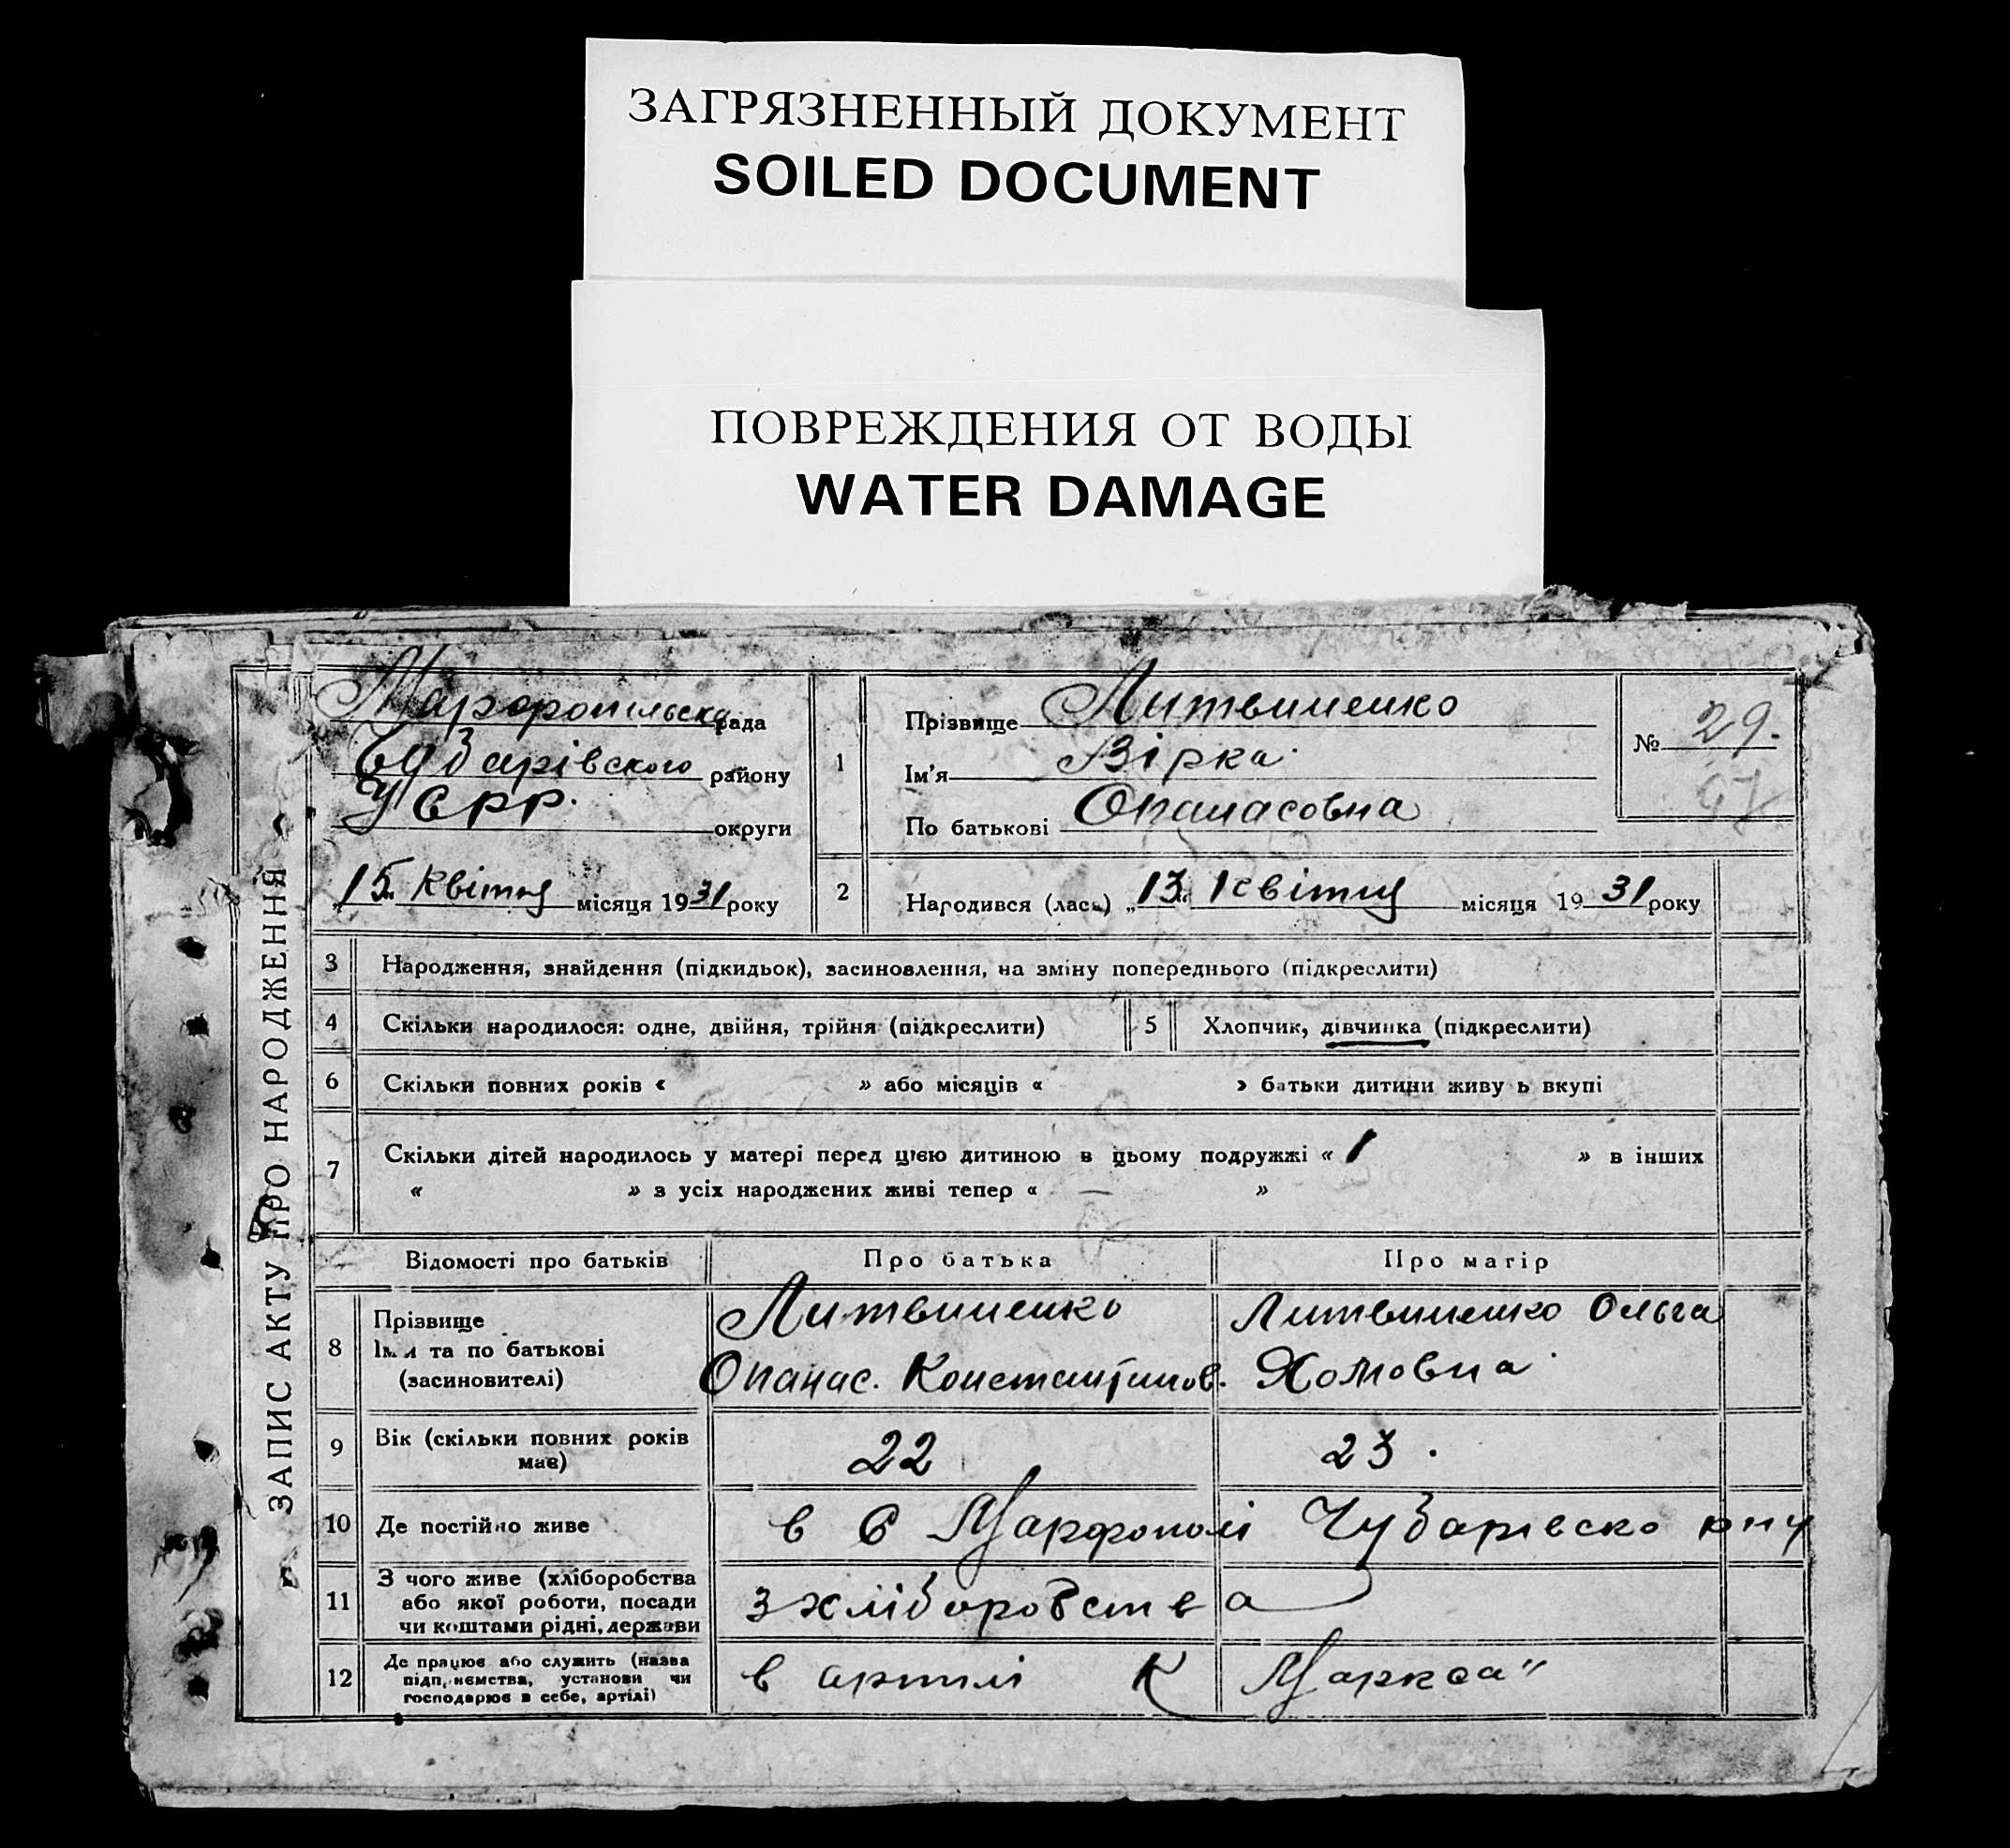 ЗАГРЯЗНЕННЫЙ ДОКУМЕНТ
SOILED DOCUMENT
ПОВРЕЖДЕНИЯ ОТ ВОДЫ
WATER DAMAGE
ЗАПИС АКТУ ПРО НАРОДЖЕННЯ
Марфопільська рада
Чубарівського району
УСРР. округи
„15“ квітня місяця 1931 року
1
Прізвище Литвиненко
Ім'я Вірка
По батькові Опанасовна
№ 29.
2
Народився (лась) „13“ квітня місяця 1931 року
3 Народження, знайдення (підкидьок), засиновлення, на зміну попереднього (підкреслити)
4 Скільки народилося: одне, двійня, трійня (підкреслити) 5 Хлопчик, дівчинка (підкреслити)
6 Скільки повних років « » або місяців « » батьки дитини живу ь вкупі
7 Скільки дітей народилось у матері перед цією дитиною в цьому подружжі « 1 » в інших
« » з усіх народжених живі тепер « — »
Відомості про батьків Про батька Про матір
8 Прізвище
Ім'я та по батькові
(засиновителі)
Литвиненко
Опанас. Константинов.
Литвиненко Ольга
Хомовна
9 Вік (скільки повних років
має)
22 23.
10 Де постійно живе в С Марфополі Чубарівско рну
11 З чого живе (хліборобства
або якої роботи, посади
чи коштами рідні, держави
з хліборобства
12 Де працює або служить (назва
підприємства, установи чи
господарює в себе, артілі)
в артілі К Маркса"